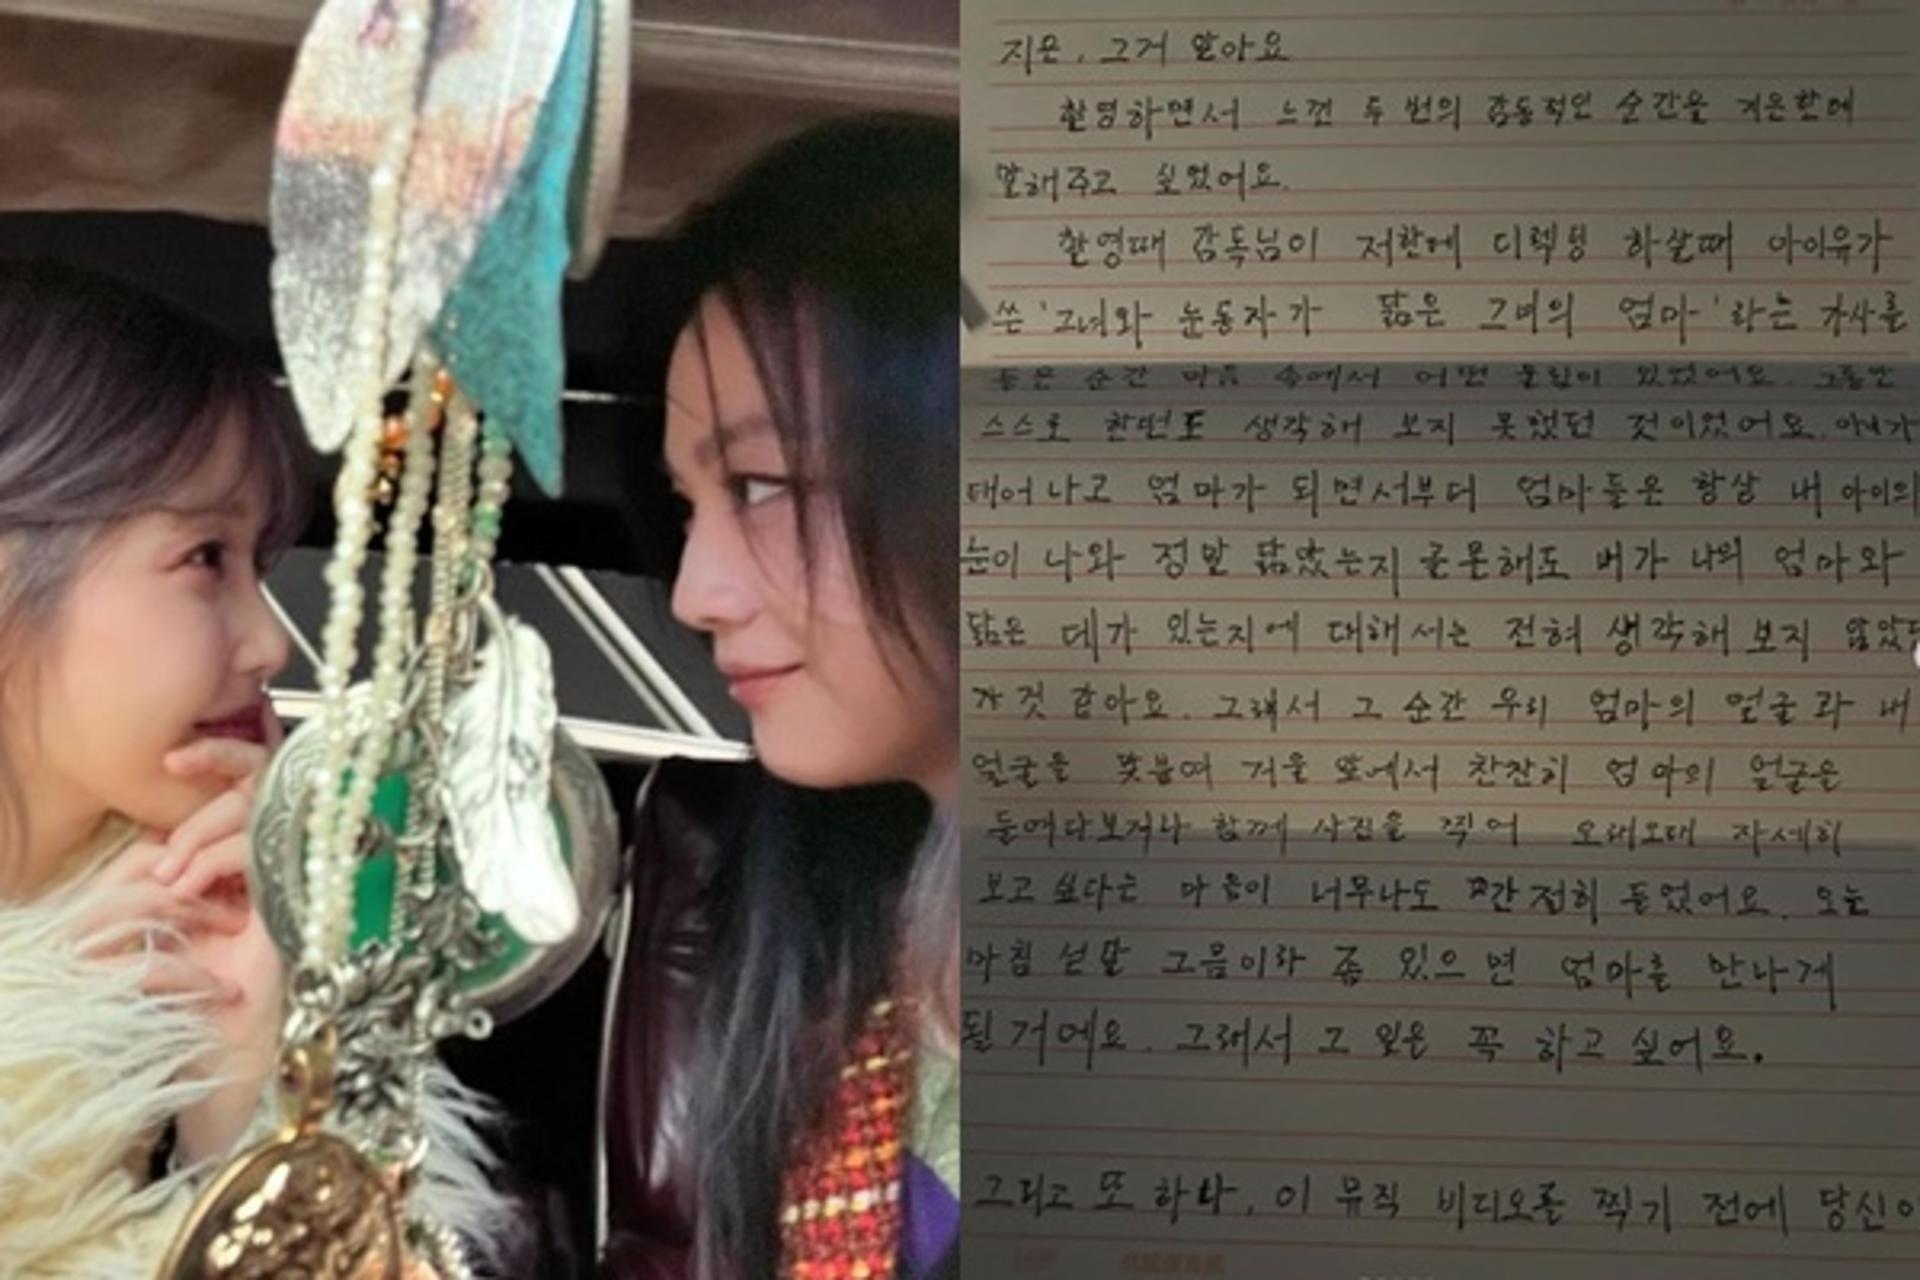 지은, 그거 알아요
촬영하면서 느낀 두 번의 감동적인 순간을 지은한테
말해주고 싶었어요.
촬영때 감독님이 저한테 디렉팅 하실때 아이유가
쓴 '그녀와 눈동자가 닮은 그녀의 엄마'라는 가사를
들은 순간 마음 속에서 어떤 울림이 있었어요. 그동안
스스로 한번도 생각해 보지 못했던 것이었어요. 아이가
태어나고 엄마가 되면서부터 엄마들은 항상 내 아이의
눈이 나와 정말 닮았는지 골몰해도 내가 나의 엄마와
닮은 데가 있는지에 대해서는 전혀 생각해 보지 않았던
것 같아요. 그래서 그 순간 우리 엄마의 얼굴과 내
얼굴을 맞붙여 거울 앞에서 찬찬히 엄마의 얼굴을
들여다보거나 함께 사진을 찍어 오래오래 자세히
보고 싶다는 마음이 너무나도 간절히 들었어요. 오늘
마침 섣달 그믐이라 좀 있으면 엄마를 만나게
될 거예요. 그래서 그 일은 꼭 하고 싶어요.
그리고 또 하나, 이 뮤직 비디오를 찍기 전에 당신이